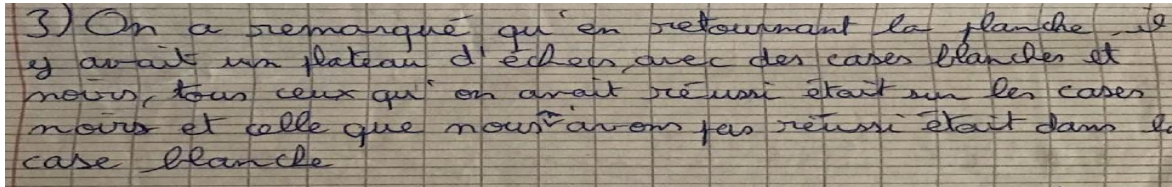 3) On a remarqué qu'en retournant la planche il
y avait un plateau d'échecs avec des cases blanches et
noirs, tous ceux qu'on avait réussi était sur les cases
noirs et celle que nous avons pas réussi était dans la
case blanche